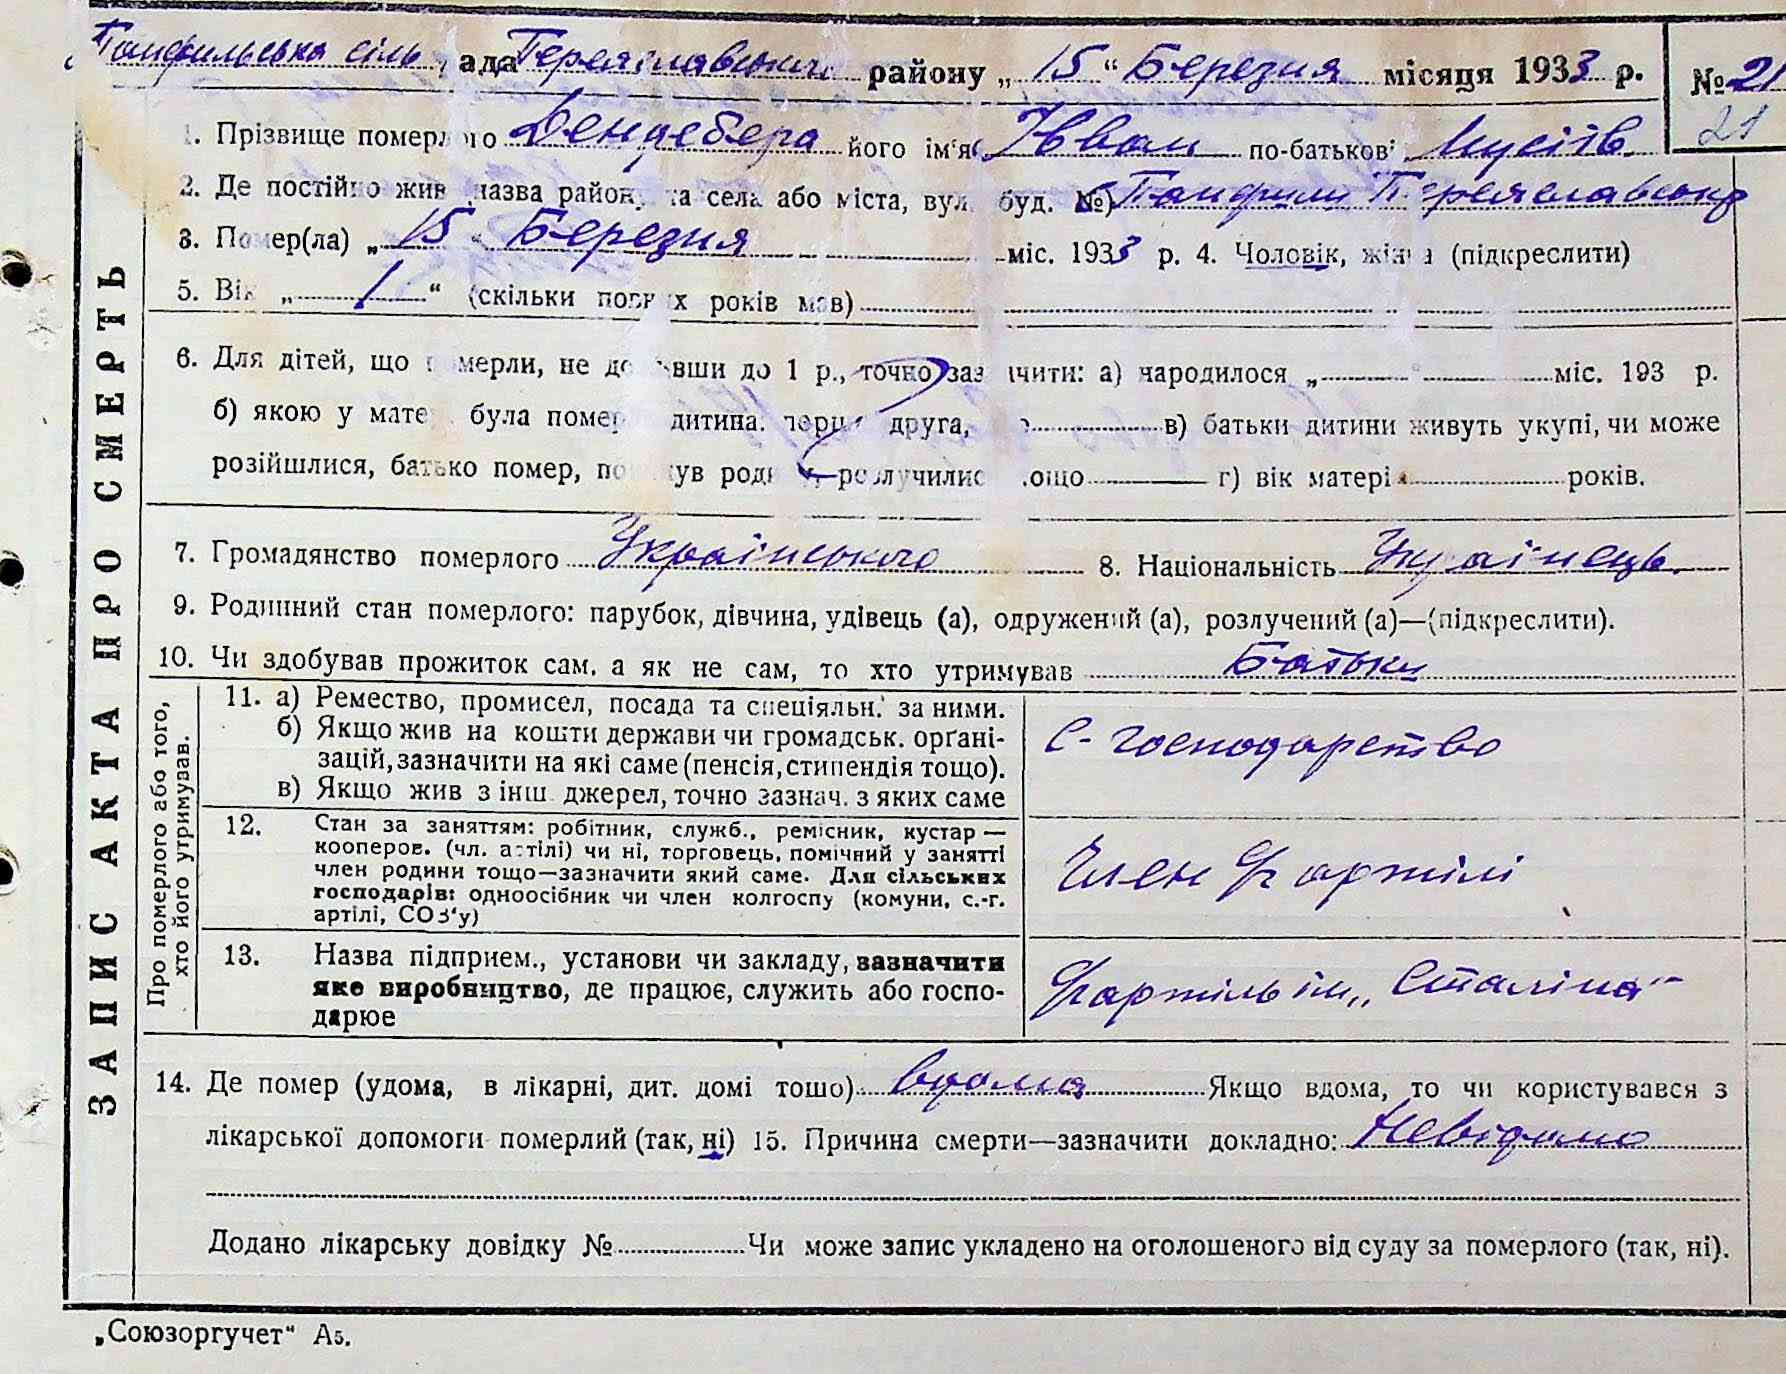 Панфильська сіль ада Переяславського району „ 15 “ Березня місяця 1933 р. № 21
21
1. Прізвище померлого Дендебера його ім'я Іван по-батькові Мусіїв.
2. Де постійно жив назва району та села або міста, вул буд. №) Панфили Переяславськ
3. Помер(ла) „ 15 “ Березня міс. 1933 р. 4. Чоловік, жінка (підкреслити)
5. Вік „ 1 “ (скільки повних років мав)
6. Для дітей, що померли, не доживши до 1 р., точно зазначити: а) народилося „ міс. 193 р.
б) якою у матері була померла дитина: перша друга, в) батьки дитини живуть укупі, чи може
розійшлися, батько помер, покинув родину, розлучились тощо г) вік матері років.
7. Громадянство померлого Українського 8. Національність Українець.
9. Родинний стан померлого: парубок, дівчина, удівець (а), одружений (а), розлучений (а)—(підкреслити).
10. Чи здобував прожиток сам, а як не сам, то хто утримував Батьки
ЗАПИС АКТА ПРО СМЕРТЬ
Про померлого або того,
хто його утримував.
11. а) Ремество, промисел, посада та спеціяльн. за ними.
б) Якщо жив на кошти держави чи громадськ. орґані-
зацій, зазначити на які саме (пенсія, стипендія тощо).
в) Якщо жив з інш. джерел, точно зазнач. з яких саме
С-господарство
12. Стан за заняттям: робітник, служб., ремісник, кустар —
кооперов. (чл. артілі) чи ні, торговець, помічний у занятті
член родини тощо—зазначити який саме. Для сільських
господарів: одноосібник чи член колгоспу (комуни, с.-г.
артілі, СОЗ'у)
Член артілі
13. Назва підприєм., установи чи закладу, зазначити
яке виробництво, де працює, служить або госпо-
дарює
артіль ім „ Сталіна“
14. Де помер (удома, в лікарні, дит. домі тошо) вдома Якщо вдома, то чи користувався з
лікарської допомоги померлий (так, ні) 15. Причина смерти—зазначити докладно: Невідомо
Додано лікарську довідку № Чи може запис укладено на оголошеного від суду за померлого (так, ні).
„Союзоргучет“ А5.